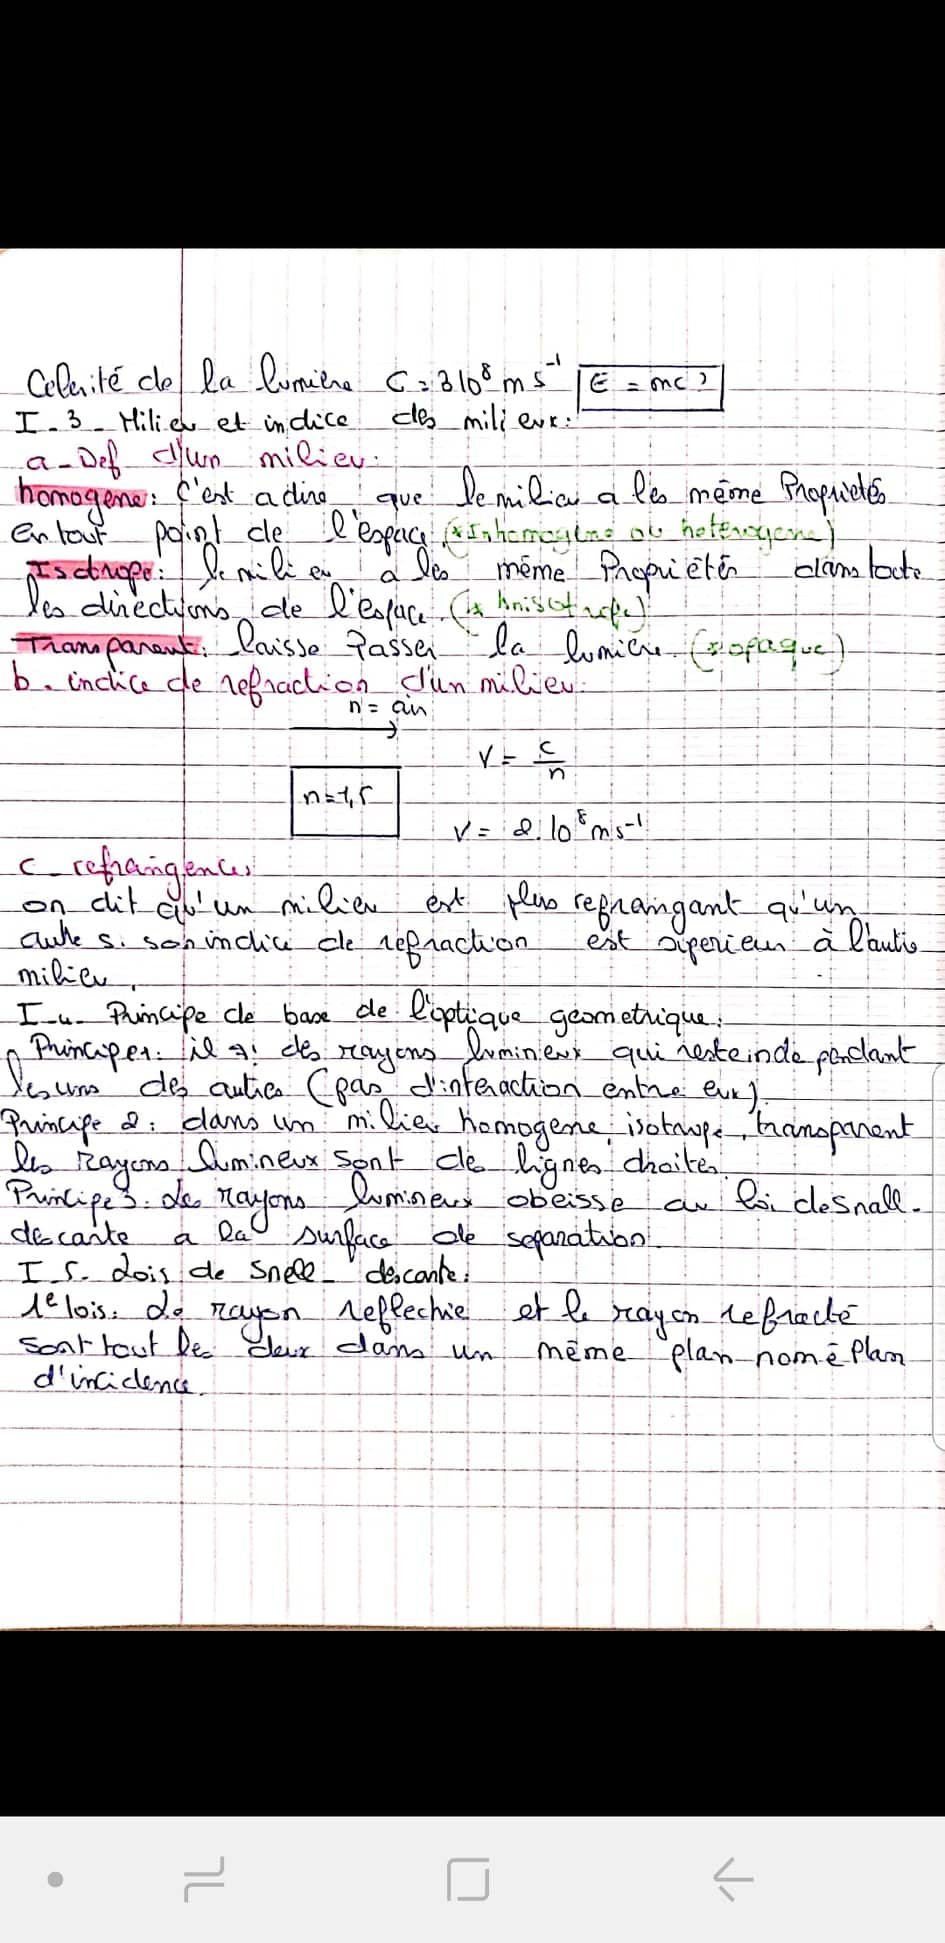 Celerité de la lumière C = 3 10⁸ m s⁻¹ E = mc²
I-3- Milieu et indice des milieux:
a- Def d'un milieu:
homogene: c'est a dire que le milieu a les même Proprietés
en tout point de l'espace (≠ Inhomogene ou heterogene)
Isotrope: le milieu a les même Propriétés dans toute
les directions de l'espace. (≠ Anisotrope)
Transparent: laisse Passer la lumière. (≠ opaque)
b. indice de refraction d'un milieu:
n = air
n=1,5
V = c/n
V = 2.10⁸ ms⁻¹
c- refrangence
on dit qu'un milieu est plus refrangant qu'un
autre si son indice de refraction est superieur à l'autre
milieu.
I-4- Principe de base de l'optique geometrique:
Principe 1: il ∃ des rayons lumineux qui reste independant
les uns des autres (pas d'interaction entre eux)
Principe 2: dans un milieu homogene, isotrope, transparent
les rayons lumineux sont de lignes droites.
Principe 3: les rayons lumineux obeisse au loi de Snell-
descarte a la surface de separation
I 5- Lois de Snell descarte:
1e lois: Le rayon reflechie et le rayon refracté
sont tout les deux dans un même plan nomé Plan
d'incidence.